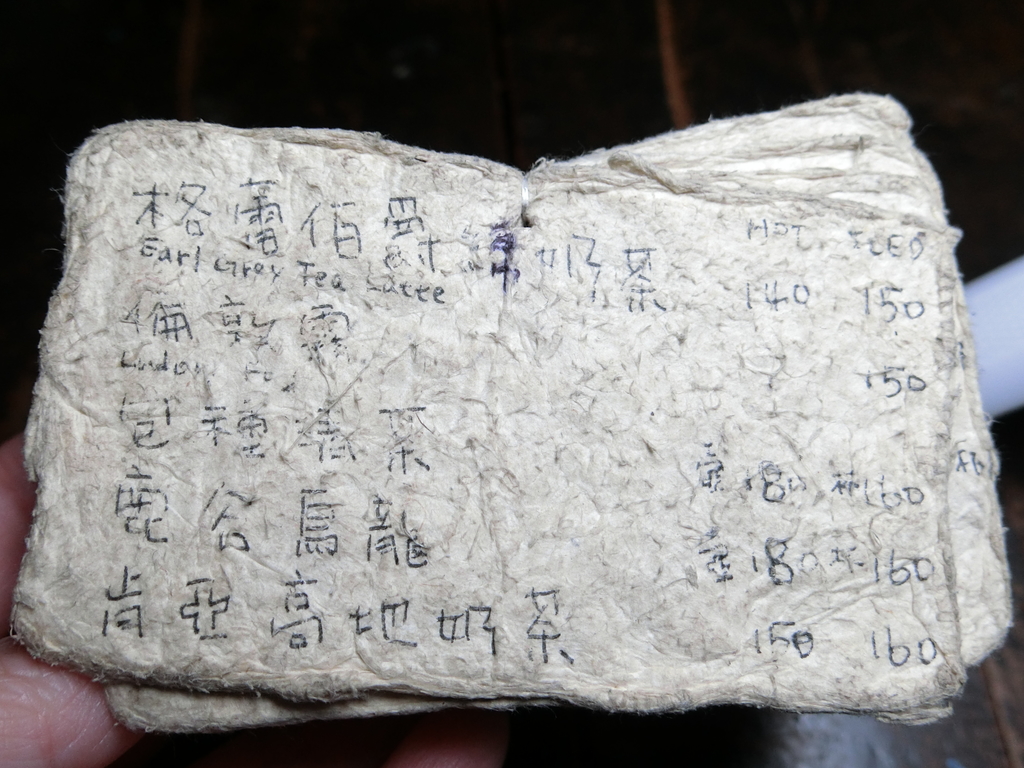 格蕾伯爵奶茶 HOT ICED
Earl Grey Tea Latte 140 150
倫敦霧
London Fog 150
包種清茶 壺 180 杯 160
鹿谷烏龍 壺 180 杯 160
肯亞高地奶茶 150 160